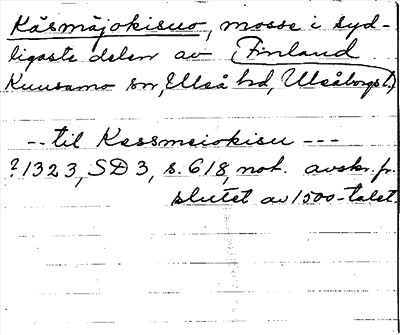 Käsmäjokisuo, mosse i syd-
ligaste delen av Finland
Kuusamo sn, Uleå hd, Uleåborgs l.)
-- til Kessmeiokisu ---
?1323, SD 3, s. 618, not. avskr. fr.
slutet av 1500-talet.